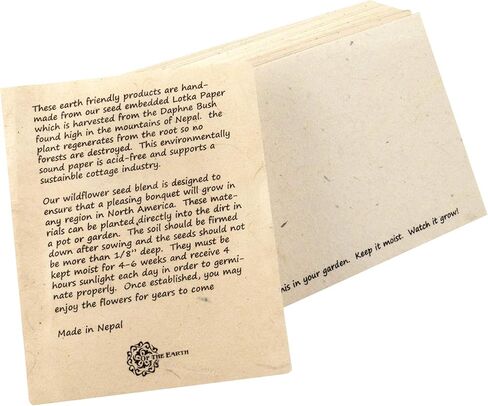 These earth friendly products are hand-
made from our seed embedded Lotka Paper
which is harvested from the Daphne Bush
found high in the mountains of Nepal. the
plant regenerates from the root so no
forests are destroyed. This environmentally
sound paper is acid-free and supports a
sustainble cottage industry.
Our wildflower seed blend is designed to
ensure that a pleasing bonquet will grow in
any region in North America. These mate-
rials can be planted,directly into the dirt in
a pot or garden. The soil should be firmed
down after sowing and the seeds should not
be more than 1/8" deep. They must be
kept moist for 4-6 weeks and receive 4
hours sunlight each day in order to germi-
nate properly. Once established, you may
enjoy the flowers for years to come
Made in Nepal
OF THE EARTH
his in your garden. Keep it moist. Watch it grow!